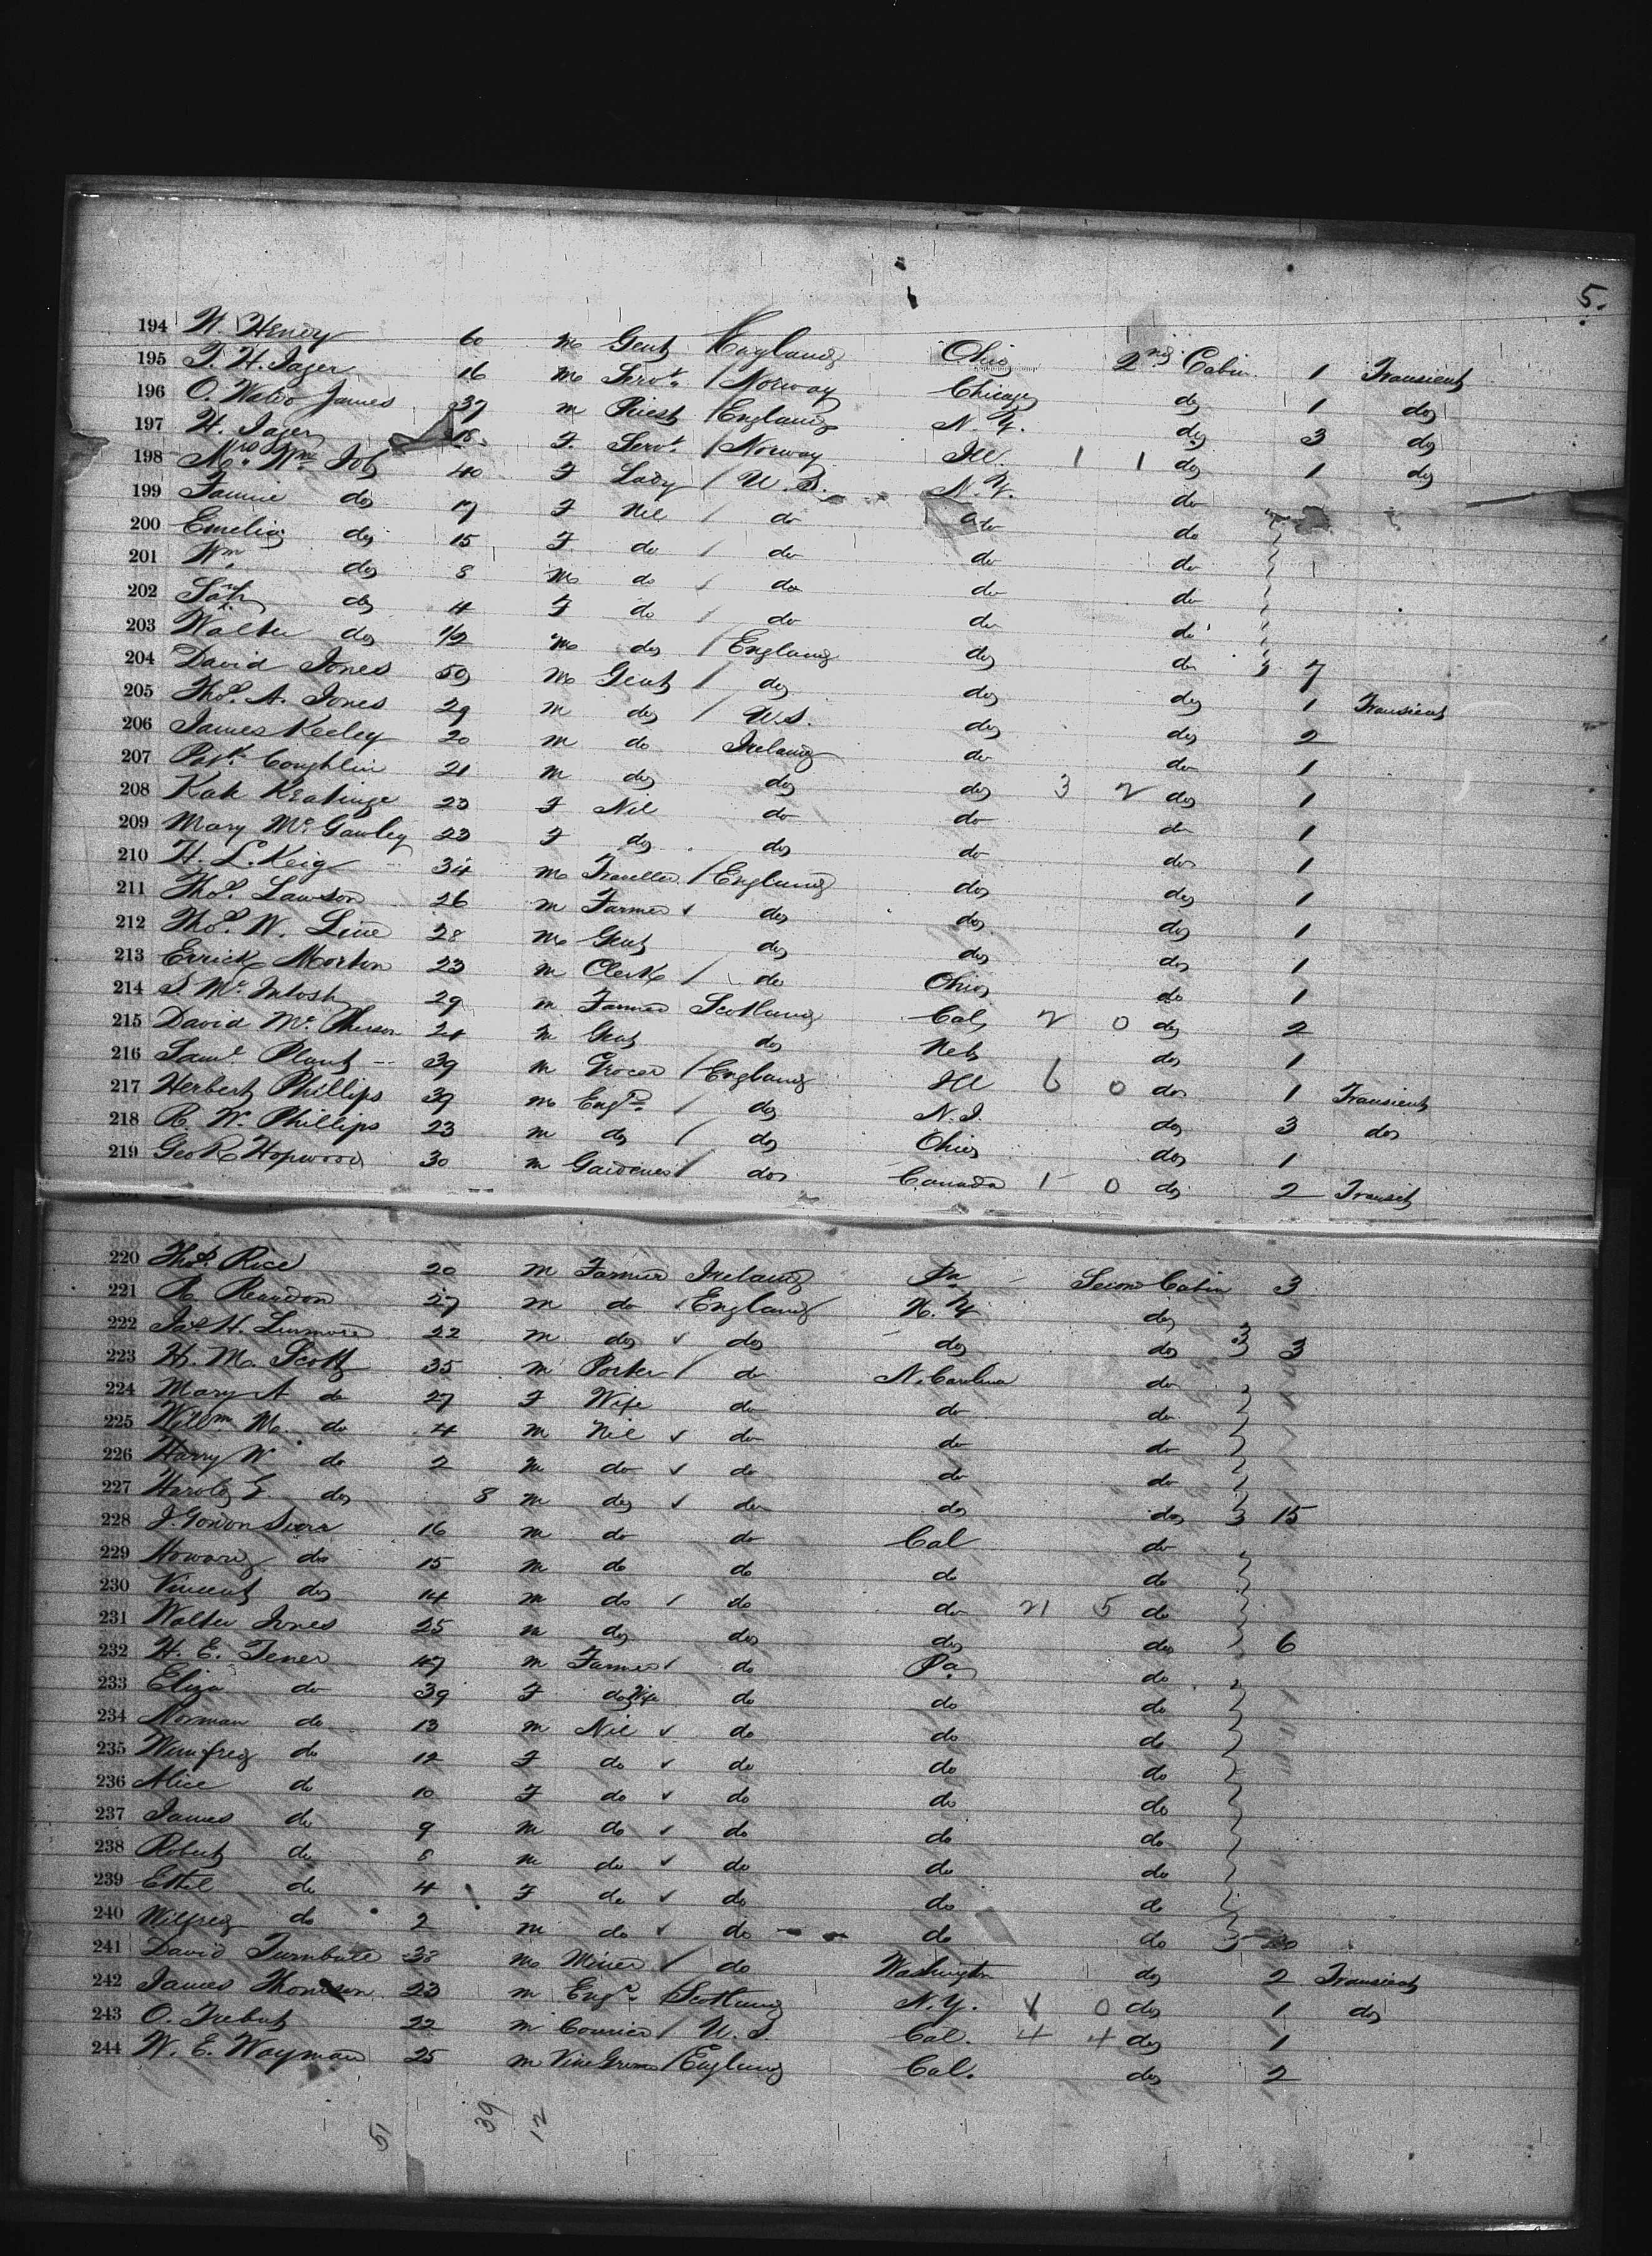 5.
194 W. Henry 60 m Gent / England Ohio 2nd Cabin 1 Transient
195 T. H. Jager 16 m Servt. / Norway Chicago do 1 do
196 O. Waldo James 37 m Priest / England N.Y. do 3 do
197 H. Jager 18 F Servt. / Norway Ill. 1 1 do 1 do
198 Mrs. Wm Job 40 F Lady / U.S. N.Y. do
199 Fannie do 17 F Nil / do do do
200 Emelia do 15 F do / do do do
201 Wm. do 8 m do / do do do
202 do 4 F do / do do do
203 Walter do 1/2 m do / England do do 7
204 David Jones 50 m Gent / do do do 1 Transient
205 Thos. A. Jones 29 m do / U.S. do do 2
206 James Keeley 20 m do Ireland do do 1
207 Patk. Coughlin 21 m do do do 3 2 do 1
208 Kate Keatinge 20 F Nil do do do 1
209 Mary McGawley 23 F do do do do 1
210 H. L. Keig 34 m Traveller / England do do 1
211 Thos. Lawson 26 m Farmer do do do 1
212 Thos. W. Line 28 m Gent do do do 1
213 Errick Morton 23 m Clerk / do Ohio do 1
214 S McIntosh 29 m Farmer Scotland Cal, 2 0 do 2
215 David McPherson 24 m Gent do Neb do 1
216 Saml Plant 39 m Grocer / England Ill 6 0 do 1 Transient
217 Herbert Phillips 39 m Engr. / do N.J. do 3 do
218 R. W. Phillips 23 m do / do Ohio do 1
219 Geo R Hopwood 30 m Gardener / do Canada 1 0 do 2 Transit
220 Thos. Rice 20 m Farmer Ireland Pa Second Cabin 3
221 R. Reardon 27 m do England N.Y do
222 Jas. H. 22 m do do do do 3
223 H. M. Scott 35 m Porter / do N. Carolina do
224 Mary A do 27 F Wife do do do
225 Willm. M. do 4 m Nil do do do
226 Harry W do 2 m do do do do
227 Harold G. do 8 m do do do do 15
228 J. Gordon 16 m do do Cal do
229 Howard do 15 m do do do do
230 Vincent do 14 m do / do do 21 5 do
231 Walter Jones 25 m do do do do 6
232 H. E. Tener 47 m Farmer do Pa do
233 Eliza do 39 F do Wife do do do
234 Norman do 13 m Nil do do do
235 Winifred do 12 F do do do do
236 Alice do 10 F do do do do
237 James do 9 m do do do do
238 Robert do 8 m do do do do
239 Ethel do 4 F do do do do
240 Wilfred do 2 m do do do do
241 David Turnbull 38 m Miner / do Washington do 2 Transient
242 James Thomson 23 m Engr. Scotland N.Y. 0 do 1 do
243 O. Trebut 22 m Courier / U.S. Cal. 4 4 do 1
244 W. E. Wayman 25 m Vine Grower / England Cal. do 2
51 39 12